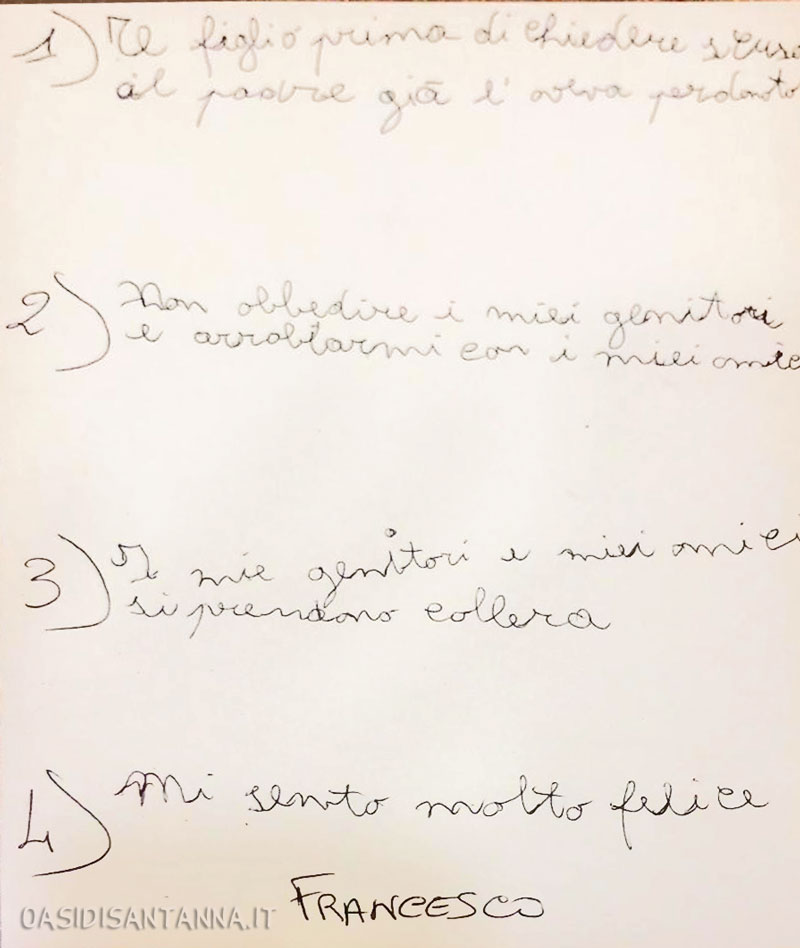 1) Il figlio prima di chiedere scusa
al padre già l'aveva perdonato
2) Non obbedire i miei genitori
e arrabbiarmi con i miei amici
3) I mie genitori e miei amici
si prendono collera
4) Mi sento molto felice
FRANCESCO
OASIDISANTANNA.IT